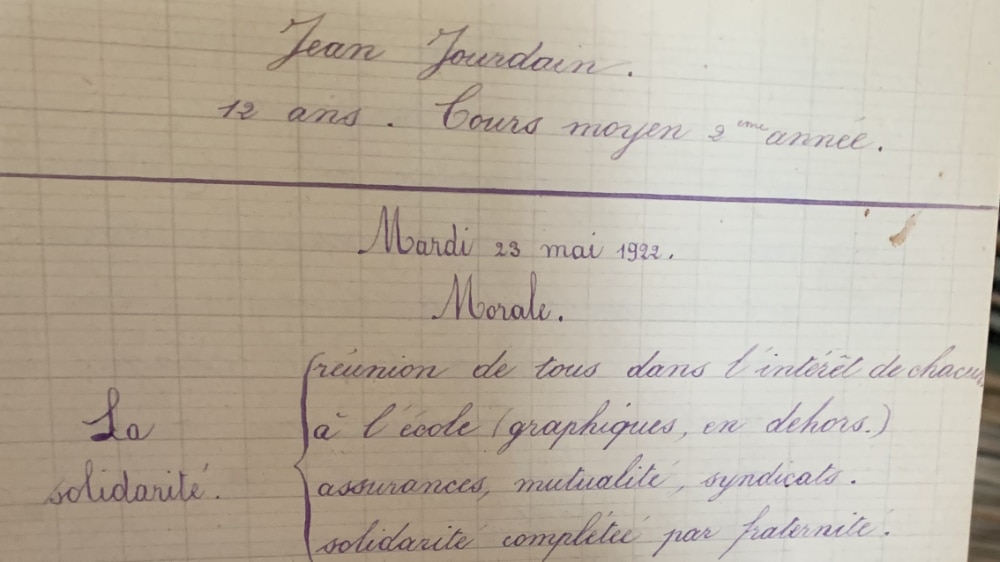 Jean Jourdain.
12 ans. Cours moyen 2ème année.
Mardi 23 mai 1922.
Morale.
La solidarité.
réunion de tous dans l'intérêt de chacun
à l'école (graphiques, en dehors.)
assurances, mutualité, syndicats.
solidarité complétée par fraternité.